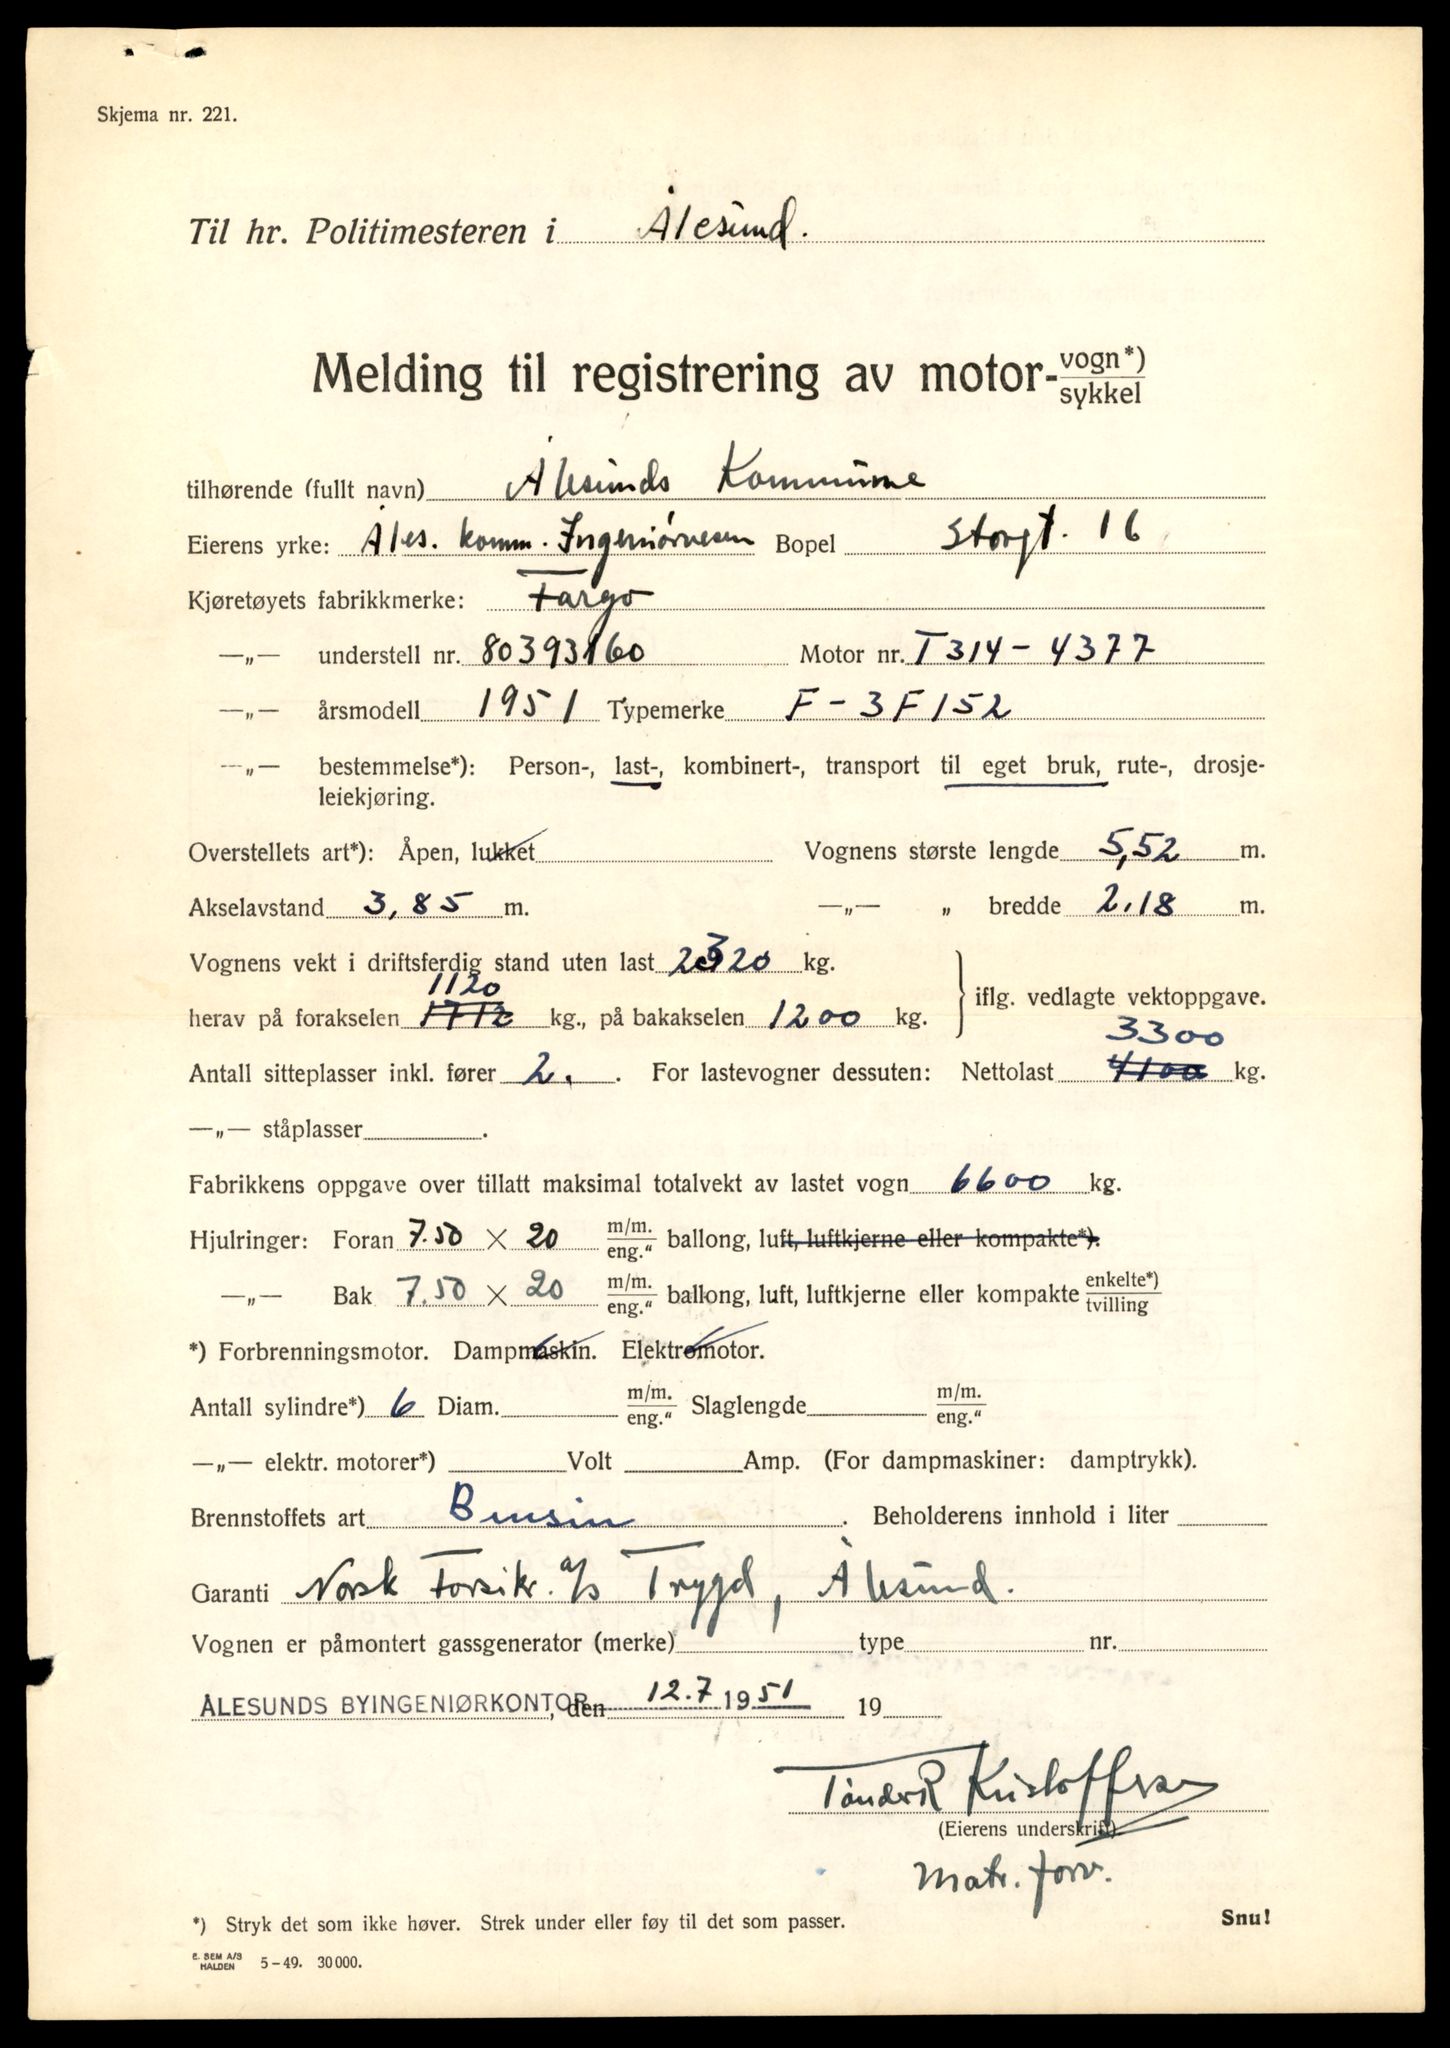 Skjema nr. 221.
Til hr. Politimesteren i Ålesund.
Melding til registrering av motor- vogn*) sykkel
tilhørende (fullt navn) Ålesunds Kommune
Eierens yrke: Åles. komm. Ingeniørvesen Bopel Storgt. 16
Kjøretøyets fabrikkmerke: Fargo
—„— understell nr. 80393160 Motor nr. T314-4377
—„— årsmodell 1951 Typemerke F-3F152
—„— bestemmelse*): Person-, last-, kombinert-, transport til eget bruk, rute-, drosje-
leiekjøring.
Overstellets art*): Åpen, lukket Vognens største lengde 5,52 m.
Akselavstand 3,85 m. —„— „ bredde 2.18 m.
Vognens vekt i driftsferdig stand uten last 2320 kg.
1120
herav på forakselen 1712 kg., på bakakselen 1200 kg. iflg. vedlagte vektoppgave.
3300
Antall sitteplasser inkl. fører 2. . For lastevogner dessuten: Nettolast 4100 kg.
—„— ståplasser .
Fabrikkens oppgave over tillatt maksimal totalvekt av lastet vogn 6600 kg.
Hjulringer: Foran 7.50 × 20 m/m. eng." ballong, luft, luftkjerne eller kompakte*).
—„— Bak 7.50 × 20 m/m. eng." ballong, luft, luftkjerne eller kompakte enkelte*) tvilling
*) Forbrenningsmotor. Dampmaskin. Elektromotor.
Antall sylindre*) 6 Diam. m/m. eng." Slaglengde m/m. eng."
—„— elektr. motorer*) Volt Amp. (For dampmaskiner: damptrykk).
Brennstoffets art Bensin . Beholderens innhold i liter
Garanti Norsk Forsikr. a/s Trygd, Ålesund.
Vognen er påmontert gassgenerator (merke) type nr.
ÅLESUNDS BYINGENIØRKONTOR, den 12.7 1951 19
Tønder Kristoffersen
(Eierens underskrift)
Matr. forv.
*) Stryk det som ikke høver. Strek under eller føy til det som passer. Snu!
E. SEM A/S HALDEN 5-49. 30000.